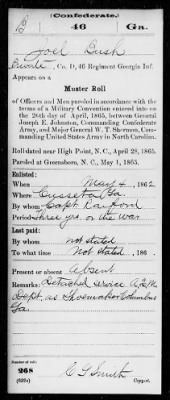 Confederate.
B 46 Ga.
Joel Bush
Private, Co. D, 46 Regiment Georgia Inf.
Appears on a
Muster Roll
of Officers and Men paroled in accordance with the
terms of a Military Convention entered into on
the 26th day of April, 1865, between General
Joseph E. Johnston, Commanding Confederate
Army, and Major General W. T. Sherman, Com-
manding United States Army in North Carolina.
Roll dated near High Point, N. C., April 28, 1865.
Paroled at Greensboro, N. C., May 1, 1865.
Enlisted:
When May 4, 1862
Where Cusseta Ga.
By whom Capt Raiford
Period three yrs. or the war
Last paid:
By whom not stated
To what time Not stated, 186 .
Present or absent Absent
Remarks: Detached service
Dept. as Shoemaker Columbus
Ga.
Number of roll:
268
C G Smith
Copyist.